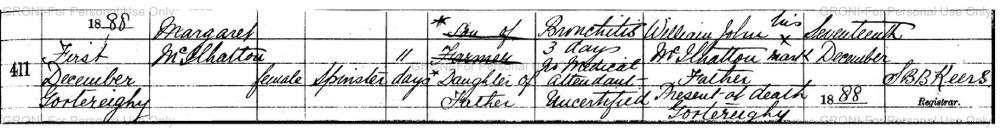 GRONI - For Personal Use Only
1888
First
December
Gortereighy
411
Margaret
McIlhatton
female
Spinster
11
days
* Son of
Farmer
* Daughter of
Father
Bronchitis
3 days
No Medical
attendant -
Uncertified
William John his
McIlhatton x mark
Father
Present at death
Gortereighy
Seventeenth
December
1888
S B B Keers
Registrar.